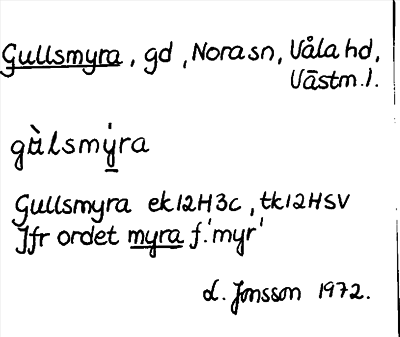 Gullsmyra, gd, Nora sn, Våla hd,
Västm. l.
gùlsmẏ̱ra
Gullsmyra ek12H3c, tk12HSV
Jfr ordet myra f. 'myr'
L. Jonsson 1972.